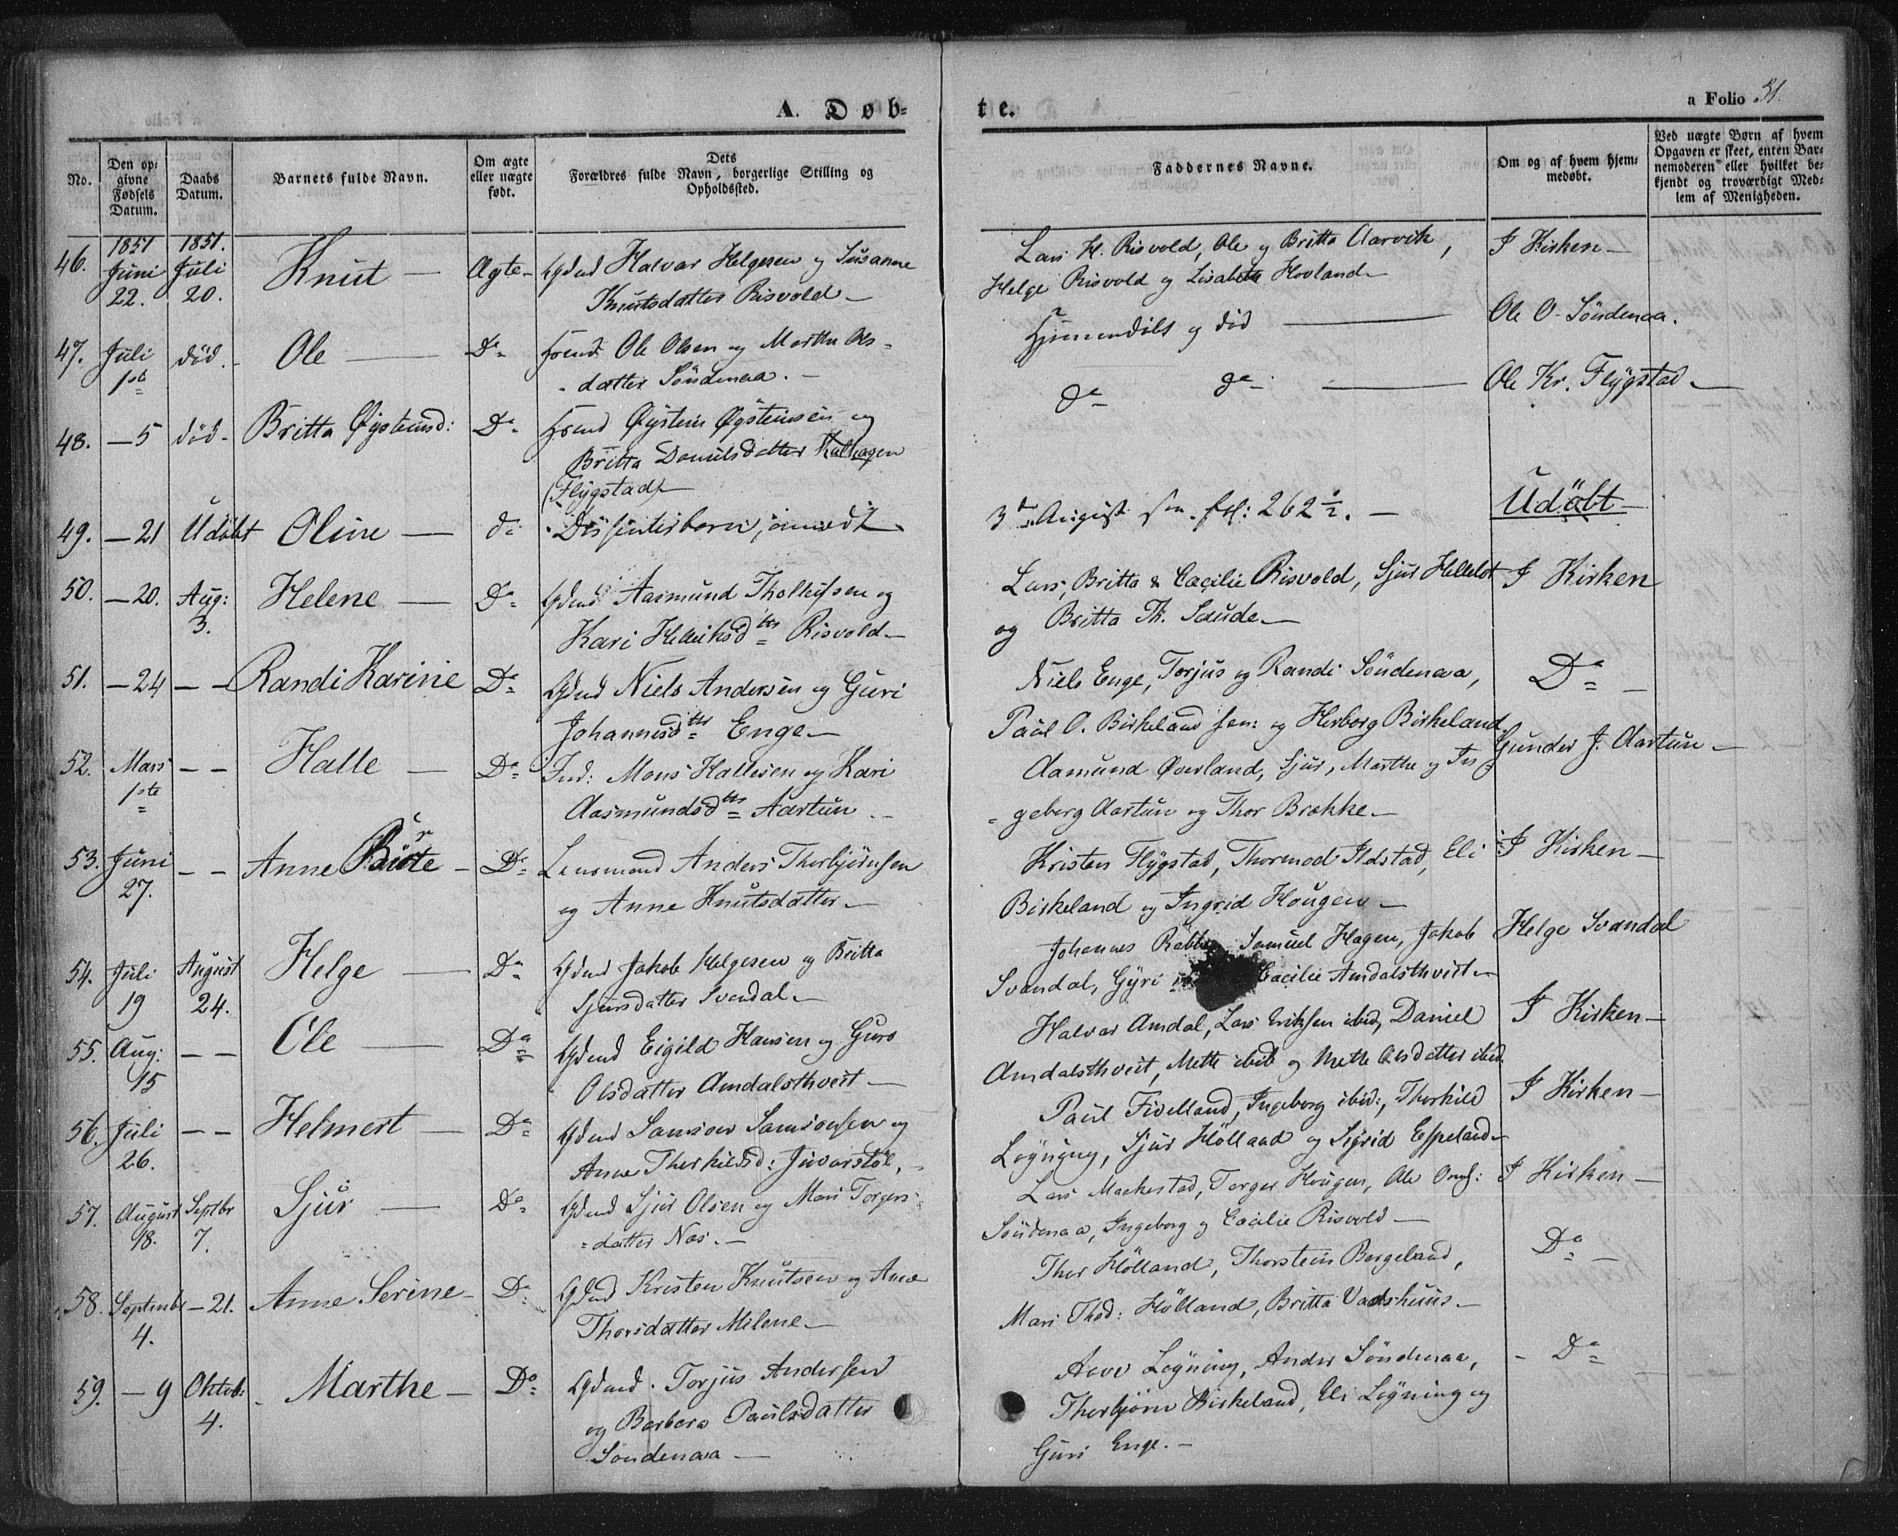 A. Døb-
te.
a Folio 51.
No.
Den op-
givne
Fødsels
Datum.
Daabs
Datum.
Barnets fulde Navn.
Om ægte
eller uægte
født.
Dets
Forældres fulde Navn, borgerlige Stilling og
Opholdssted.
Faddernes Navne.
Om og af hvem hjem-
medøbt.
Ved uægte Børn af hvem
Opgaven er skeet, enten Bar-
nemoderen eller hvilket be-
kjendt og troværdigt Med-
lem af Menigheden.
46. 1851 Juni 22. 1851. Juli 20. Knut — Ægte - Gdmd Halvar Helgesen og Susanne
Knutsdatter Risvold —
Lars H. Risvold, Ole og Britta Aarvik,
Helge Risvold og Lisabeta Hovland —
I Kirken —
47. Juli 1ste død. Ole — Do Ole Olsen og Martha Ols-
datter Søndenaa. —
Hjemmedøbt og død —
Ole O. Søndenaa.
48. — 5 død - Britta Øysteinsd: Do Øystein Øysteinsen og
Britta Danielsdatter
(Flygstad) —
do do —
Ole Kr. Flygstad —
49. — 21 Udøbt Oline — do Dissenterbarn, anmeldt
3die August fol: 262 ½. —
Udøbt —
50. — 20. Aug: 3. Helene — Do Gdmd Aasmund Tholleifsen og
Kari Henriksdtr Risvold —
Lars, Britta & Cæcilie Risvold, Sjur Helleløt
og Britta Th. Saude —
I Kirken
51. — 24 — — Randi Karine Do Gdmd Niels Andersen og Guri
Johannesdtr Enge —
Niels Enge, Torjus og Randi Søndenaa,
Paul O. Birkeland sen: og Herborg Birkeland
Do —
52. Mars 1ste — — Halle — Do Ind: Mons Hallesen og Kari
Aasmundsdtr Aartun —
Aamund Øverland, Sjur, Martha og In-
geborg Aartun og Thor Brakke —
Gunder J. Aartun —
53. Juni 27. — — Anne Birte — Do Lensmand Anders Thorbjørnsen
og Anne Knutsdatter —
Kristen Flygstad, Thormod Ilstad, Eli
Birkeland og Ingrid Hougen —
I Kirken —
54. Juli 19 August 24. Helge — Do Gdmd Jakob Helgesen og Britta
Sjursdatter Svandal —
Johannes Samuel Hagen, Jakob
Svandal, Gyri Cæcilie Amdalsthveit —
Helge Svandal
55. Aug: 15 — — Ole — Do Gdmd Eigild Hansen og Guro
Olsdatter Amdalsthveit —
Halvar Amdal, Lars Eriksen ibid, Daniel
Amdalsthveit, Mette ibid og Mette Olsdatter ibid
I Kirken —
56. Juli 26. — — Helmert — Do Gdmd Samson Samsonsen og
Anne Therkildsd: Jivarstøl,
Paul Fivelland, Ingeborg ibid:, Therkild
Løgning, Sjur Hølland og Sigrid Espeland —
I Kirken —
57. August 18. Septbr 7. Sjur — Do Gdmd Sjur Olsen og Mari Torgers-
datter Næs. —
Lars Maakestad, Torger Hougen, Ole
Søndenaa, Ingeborg og Cæcilie Risvold —
I Kirken —
58. Septembr 4. — 21. Anne Serine — Do Gdmd Kristen Knutsen og Anne
Thorsdatter Milene —
Thor Hølland, Thorstein Bergeland,
Mari Thsd: Hølland, Britta Vadshuus —
Do —
59. — 9 Oktob: 4. Marthe — Do Gdmd. Torjus Andersen
og Barbara Paulsdatter
Søndenaa —
Løgning, Anders Søndenaa,
Thorbjørn Birkeland, Eli Løgning og
Guri Enge. —
— Do